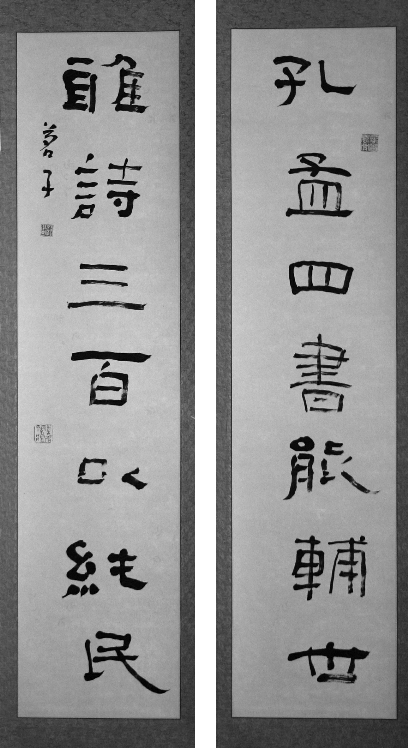 孔孟四書能輔世
雅詩三百以純民
茗子